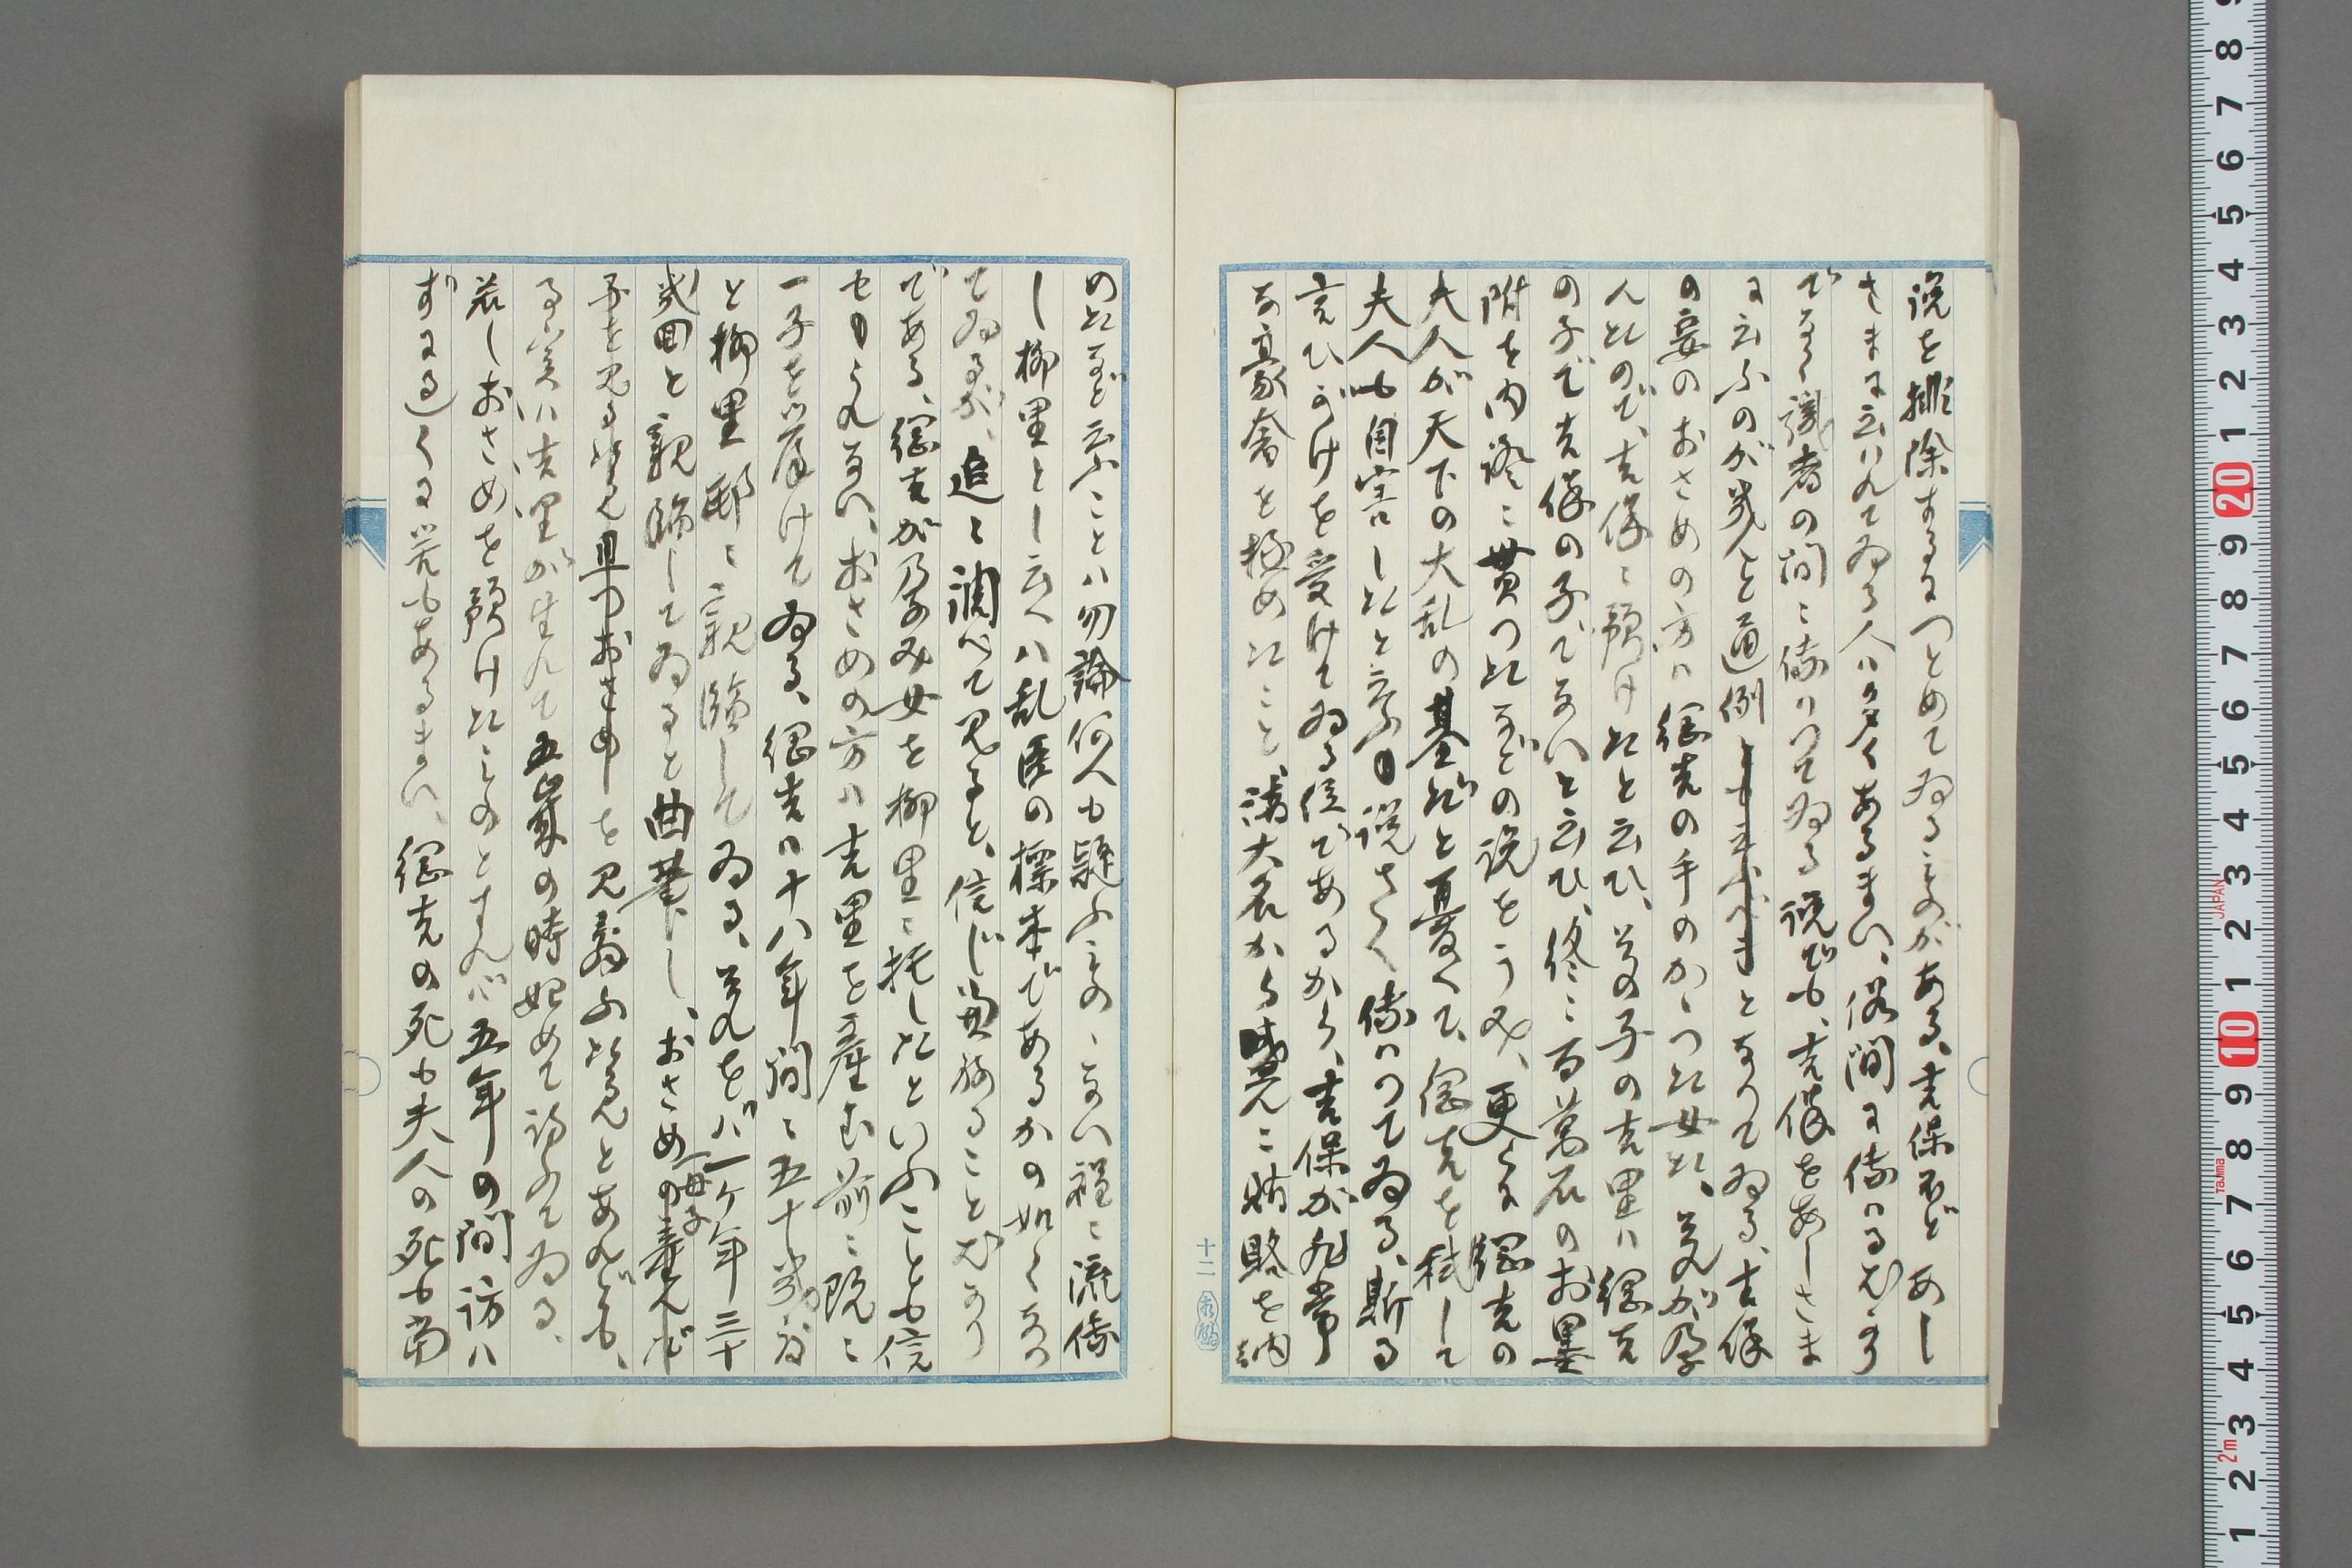 説を排除するにつとめてゐるものがある、吉保ほどあし
さまに云はれてゐる人は多くあるまい、俗間に傳はるばかり
でなく識者の間に傳はつてゐる説でも、吉保をあしさま
に云ふのが殆んど通例となつてゐる、吉保
の妾のおさめの方は綱吉の手のかゝつた女だ、其れが孕
んだので、吉保に預けたと云ひ、其の子の吉里は綱吉
の子で吉保の子でないと云ひ、終に百萬石のお墨
附を内證に貰つたなどの説をうみ、更らに綱吉の
夫人が天下の大乱の基だと憂へて、綱吉を弑して
夫人も自害したと云ふ説さへ傳はつてゐる、斯る
言ひがけを受けてゐる位であるから、吉保が非常
な豪奢を極めたこと、諸大名から盛んに賄賂を納
めたなど云ふことは勿論何人も疑ふものゝない程に流傳
し柳里とし云へば乱臣の標本であるかの如くなつ
てゐるが、追々調べて見ると、信じ兼ねることばかり
である、綱吉が孕み女を柳里に托したといふことも信
せられない、おさめの方は吉里を産む前に既に
一子を擧げてゐる、綱吉は十八年間に五十幾度
と柳里邸に親臨してゐる、其れをば一ケ年三十
幾回と親臨してゐると曲筆し、おさめ母子
子を見る
を見舞ふためとあれども、
る実は吉里が生れて五歳の時始めて訪ふてゐる、
若しおさめを預けたものとすれば五年の間訪は
ずにゐよく筈もあるまい、綱吉の死も夫人の死も当
十二